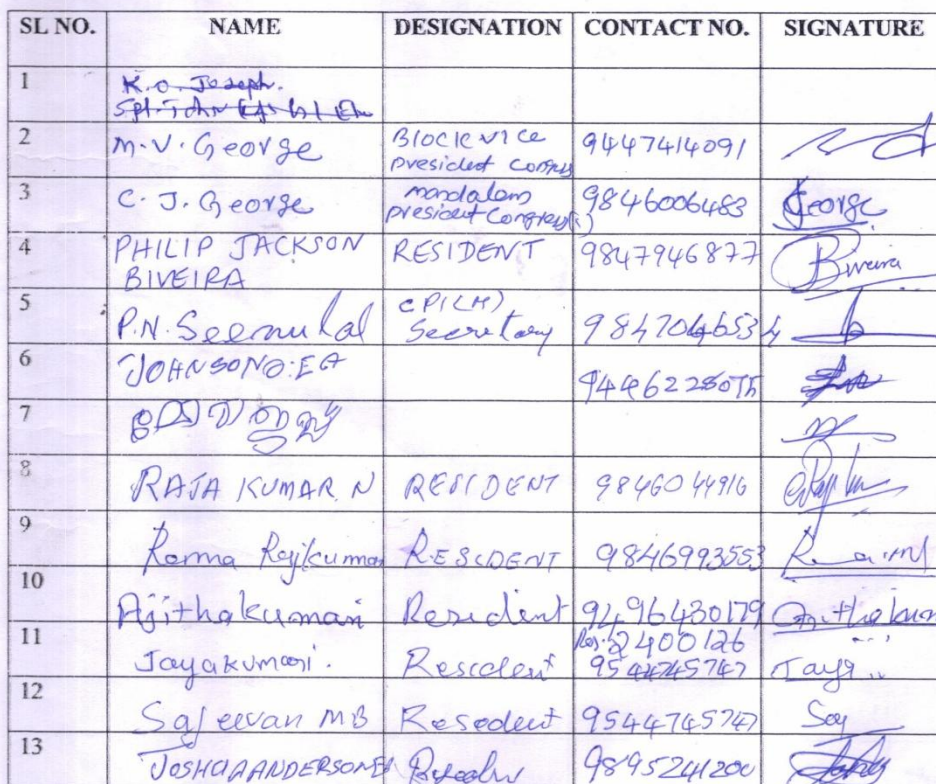 SL NO. NAME DESIGNATION CONTACT NO. SIGNATURE
1 K.O. Joseph.
2 M.V. George Block vice president Congress 9447414091
3 C. J. George mandalam president Congress(i) 9846006483 George
4 PHILIP JACKSON BIVEIRA RESIDENT 9847946877 Biveira
5 P.N. Seenulal CPI(M) Secretary 9847046534
6 JOHNSON
7
8 RAJA KUMAR N RESIDENT 9846044916
9 Rema Rajkumar RESIDENT 9846993553
10 Ajithakumari Resident 9496430179
11 Jayakumari. Resident Res: 2400126 9544745747 Jaya
12 Sajeevan MB Resedent 9544745747 Saj
13 JOSHUA ANDERSON 9895241200